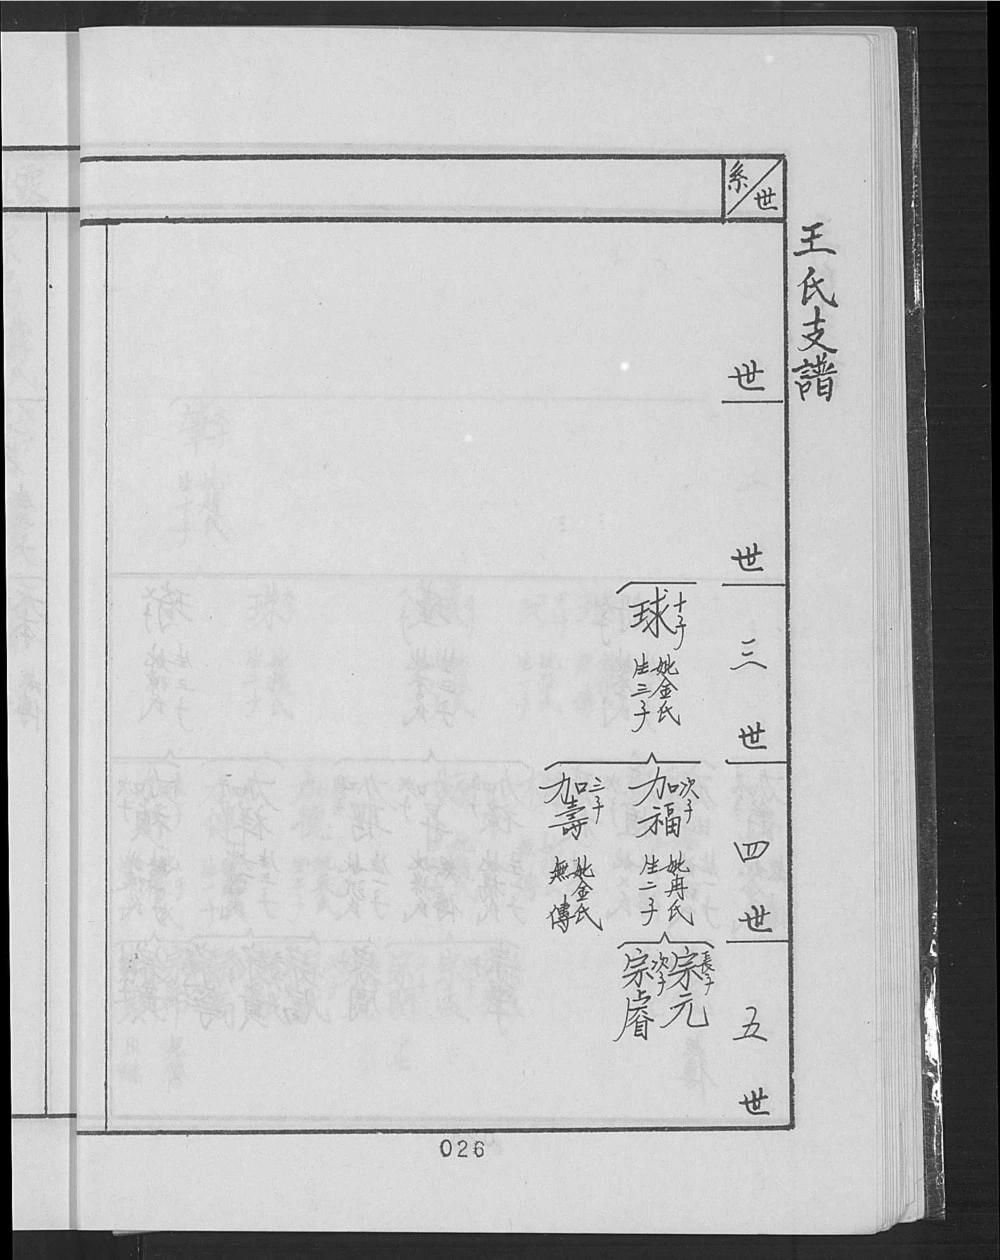 王氏支譜
系世
世
世
三世
四世
五世
十子
球
妣金氏
生三子
次子
加福
妣冉氏
生二子
三子
加壽
妣金氏
無傳
長子
宗元
次子
宗睿
026